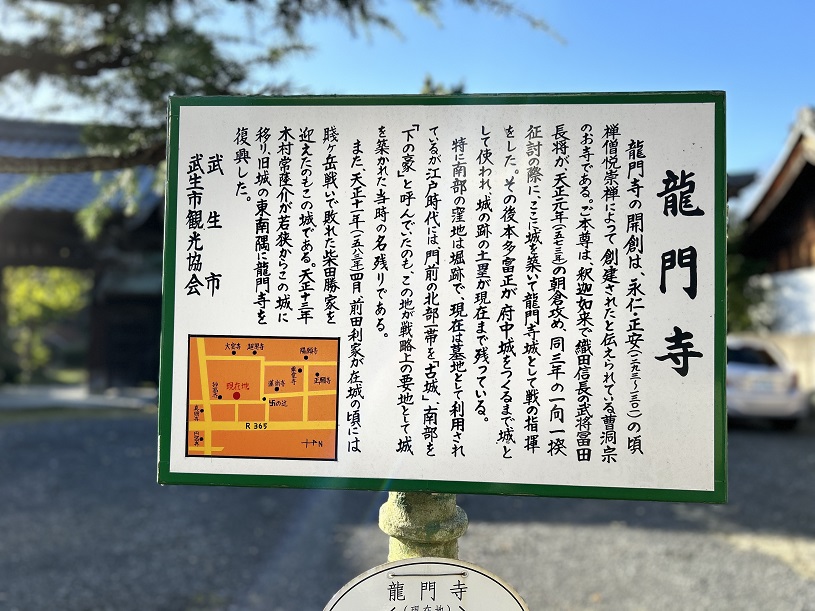 龍門寺
龍門寺の開創は、永仁・正安(一二九三〜一三〇二)の頃
禅僧悦崇禅によって創建されたと伝えられている曹洞宗
のお寺である。ご本尊は、釈迦如来で織田信長の武将冨田
長将が天正元年(一五七三年)の朝倉攻め、同三年の一向一揆
征討の際に、ここに城を築いて龍門寺城として戦の指揮
をした。その後本多富正が府中城をつくるまで城と
して使われ、城の跡の土塁が現在まで残っている。
特に南部の窪地は堀跡で、現在は墓地として利用され
ているが江戸時代には、門前の北部一帯を「古城」、南部を
「下の豪」と呼んでいたのも、この地が戦略上の要地として城
を築かれた当時の名残りである。
また、天正十一年(一五八三年)四月 前田利家が在城の頃には
賤ヶ岳戦いで敗れた柴田勝家を
迎えたのもこの城である。天正十三年
木村常陸介が若狭からこの城に
移り、旧城の東南隅に龍門寺を
復興した。
武生市
武生市観光協会
現在地
陽願寺
正願寺
R365
N
龍門寺
(現在地)